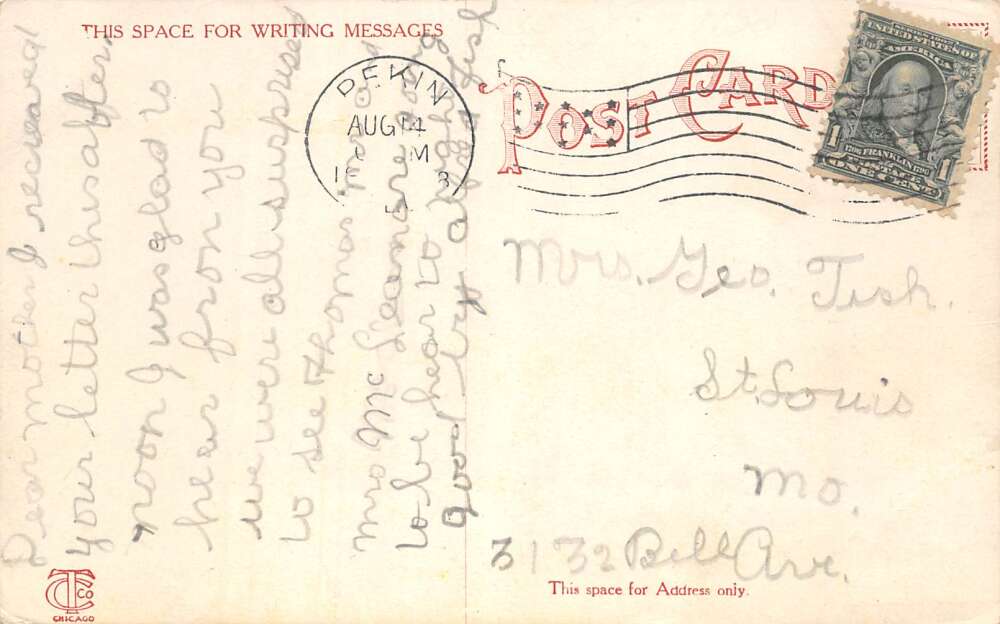 THIS SPACE FOR WRITING MESSAGES
POST CARD
PEKIN
AUG 14
M
SERIES 1902
UNITED STATES OF
AMERICA
1706 FRANKLIN 1790
POSTAGE
1 ONE CENT 1
Dear Mother I receaved
your letter this after
noon I was glad to
hear from you
we were all susprised
to see thomas
Mrs Mc
to be hear to
good by
Mrs. Geo. Tish.
St. Louis
Mo.
3132 Bell Ave.
This space for Address only.
CTCo
CHICAGO